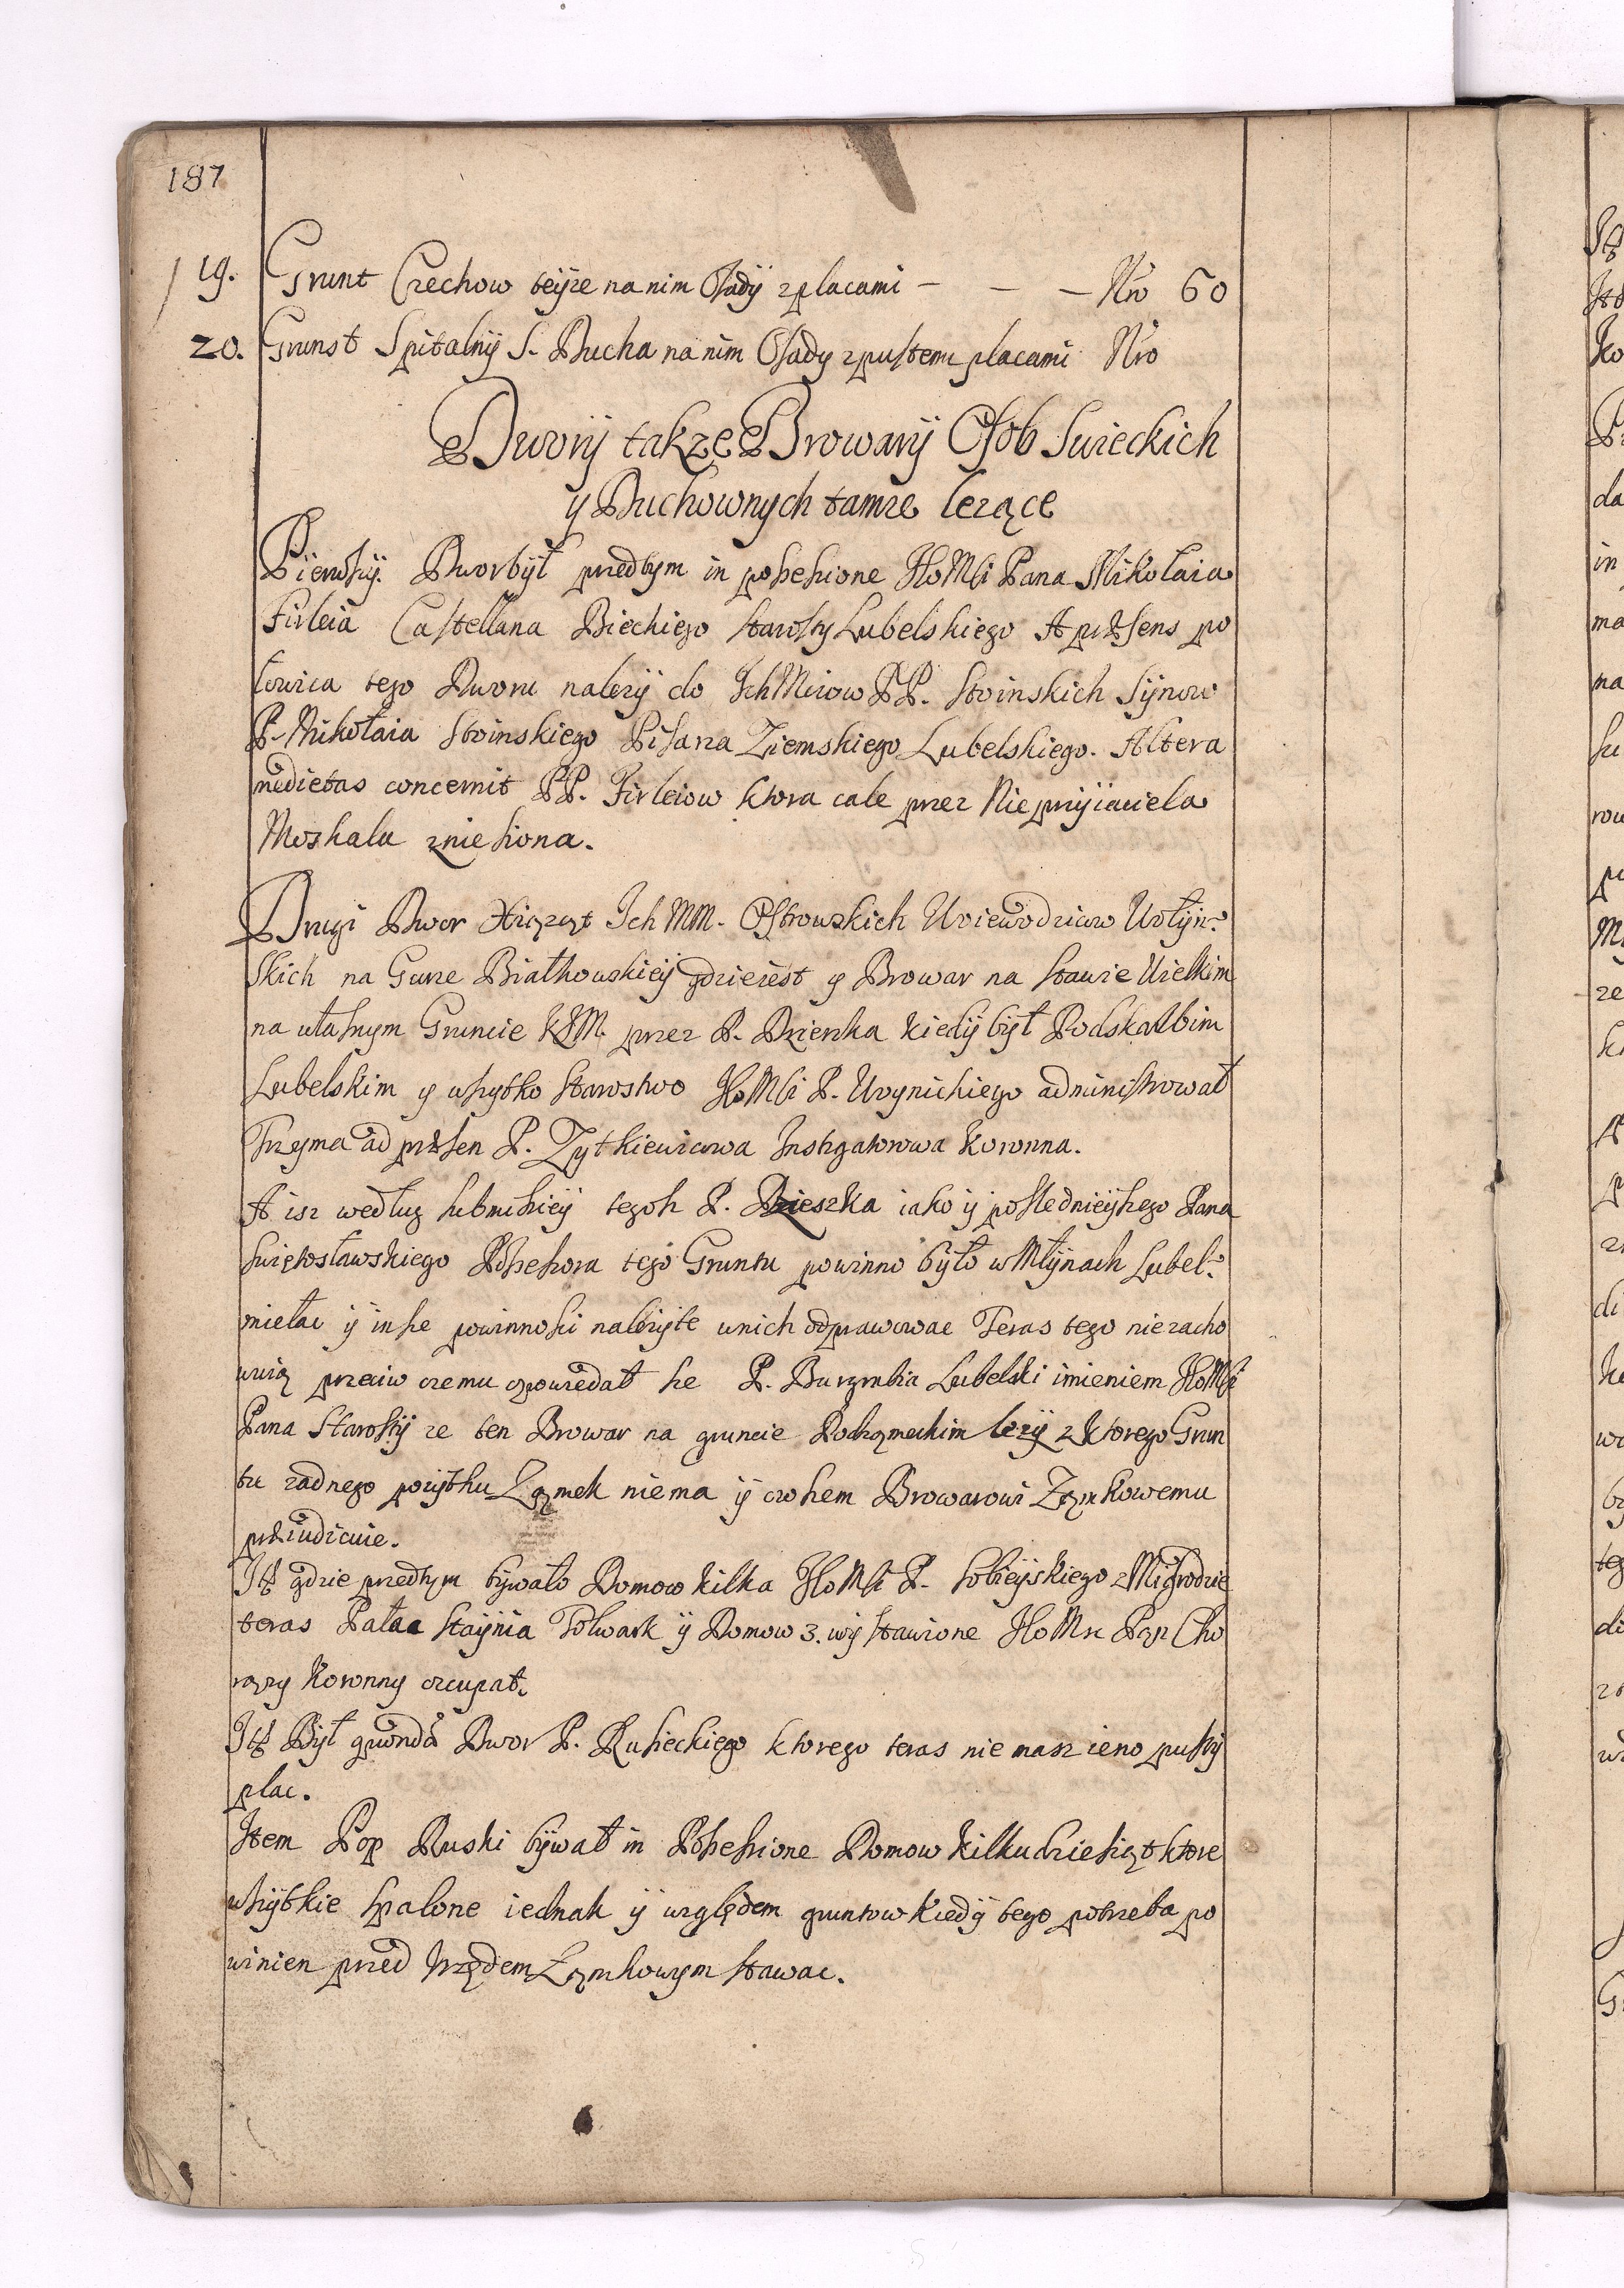 187
19. Grunt Czechow teijze na nim Osadÿ z placami – – – Nro 60
20. Grunst Spitalnÿ S. Ducha na nim Osady z pustem placami Nro
Dworÿ takze Browarÿ Osob Swieckich
y Duchownych tamze lezące
Pierwszÿ. Dwor bÿł przedtym in possessione JKoMsci Pana Mikołaia
Firleia Castellana Bieckiego Starosty Lubelskiego A przsens po
łowica tego Dworu nalezÿ do IchMciow PP. Stoinskich Sÿnow
P. Mikołaia Stoinskiego Pisarza Ziemskiego Lubelskiego. Altera
medietas concernit PP. Firleiow ktora cale przez Nieprzÿiaciela
Moskala zniesiona.
Drugi Dwor Xiąząt Ich MM. Ostrowskich Woiewodzicow Wołÿn-
skich na Gurze Białkowskieÿ gdzie iest y Browar na Stawie Wielkim
na własnym Gruncie KJM. przez P. Dzierzka kiedÿ bÿł Podskarbim
Lubelskim y wszytko Starostwo JKoMsci P. Woynickiego administrował
Trzyma ad przsen P. Zytkiewiczowa Instigatorowa Koronna.
A isz według submissieÿ tegosz P. Dzieszka iako ÿ poslednieÿszego Pana
Swiętosławskiego Possessora tego Gruntu powinno bÿło w Młÿnach Lubel:
mełac ÿ insze powinnosci nalezÿte unich odprawowac Teras tego nie zacho
wuią przeciw czemu opowiedał sie P. Burgrabia Lubelski imieniem JKoMsci
Pana Starostÿ ze ten Browar na gruncie Podzameckim lezÿ z ktorego Grun
tu zadnego pozÿtku Zamek nie ma ÿ owszem Browarowi Zamkowemu
prziudicuie.
Itt gdzie przedtym bÿwało Domow kilka JKoMsci P. Sobieÿskiego z Migrodzie
teras Pałac Staÿnia Folwark ÿ Domow 3. wÿstawione JKoMsc Pan Cho
rązy Koronny occupat.
Itt Bÿł quonda Dwor P. Rusieckiego ktorego teras nie masz ieno pustÿ
plac.
Item Pop Ruski bÿwał in Possessione Domow kilkudziesiąt ktore
wszÿtkie spalone iednak ÿ względem gruntow kiedÿ tego potrzeba po
winien przed Vrzędem Zamkowym stawac.